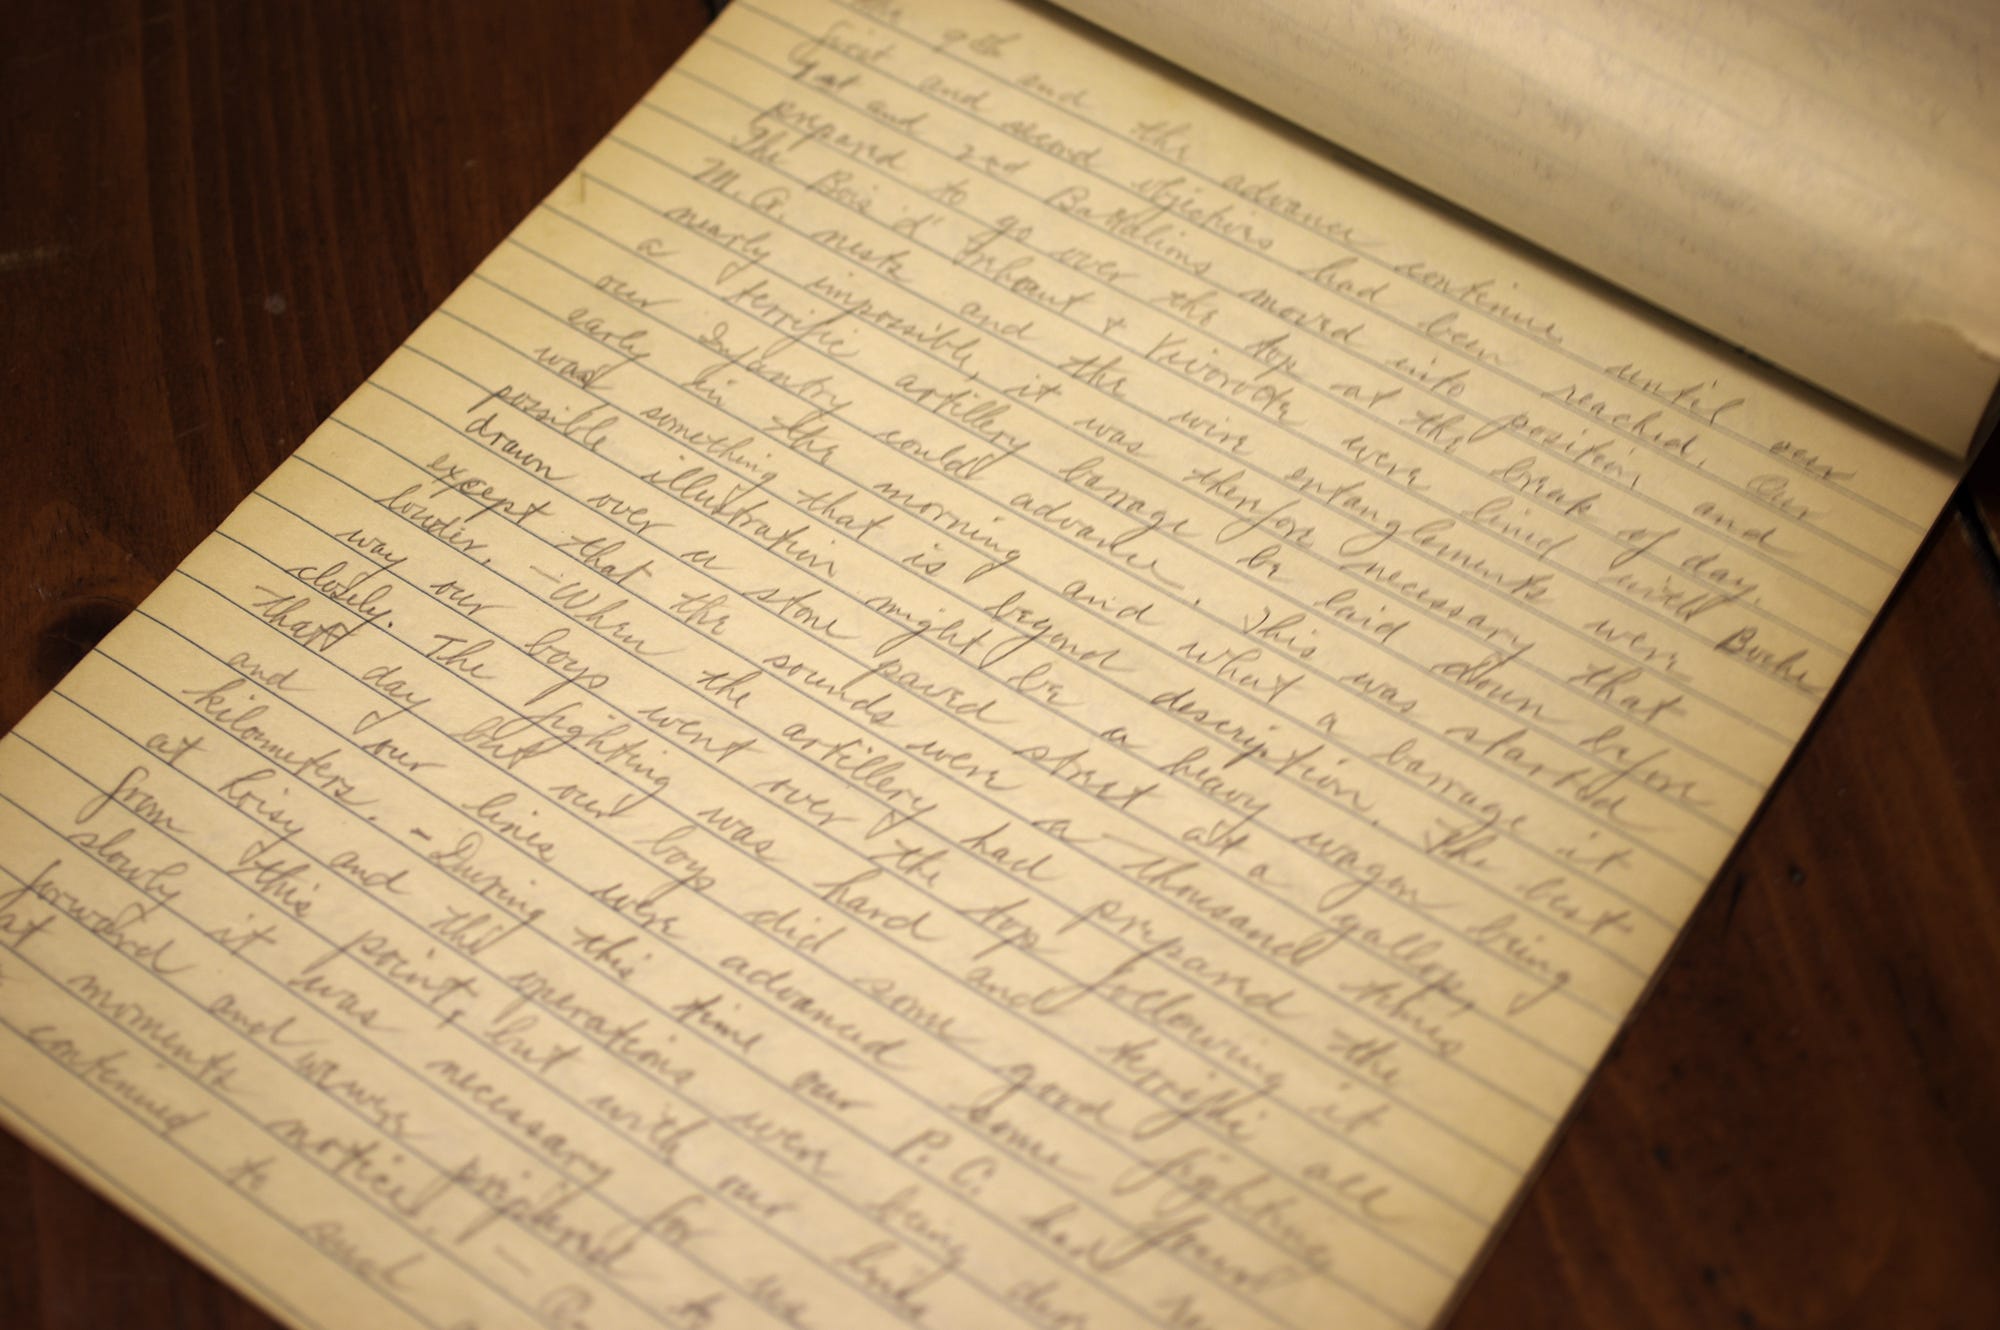 9th and the advance continue until our
first and second objectives had been reached. Our
1st and 2nd Battalions moved into position and
prepared to go over the top at the break of day.
The Bois d' were lined with Boche
M. G. nests and the wire entanglements were
nearly impossible, it was therefore necessary that
a terrific artillery barrage be laid down before
our Infantry could advance. This was started
early in the morning and what a barrage it
was something that is beyond description. The best
possible illustration might be a heavy wagon being
drawn over a stone paved street at a gallop,
except that the sounds were a thousand times
louder. — When the artillery had prepared the
way our boys went over the top following it
closely. The fighting was hard and terrific all
that day but our boys did some good fighting
and our lines were advanced some four
kilometers. — During this time our P. C. had
at Loisy and the operations were being
from this point, but with our lines
slowly it was necessary for us
forward and were prepared to
moments notice. —
continued to send